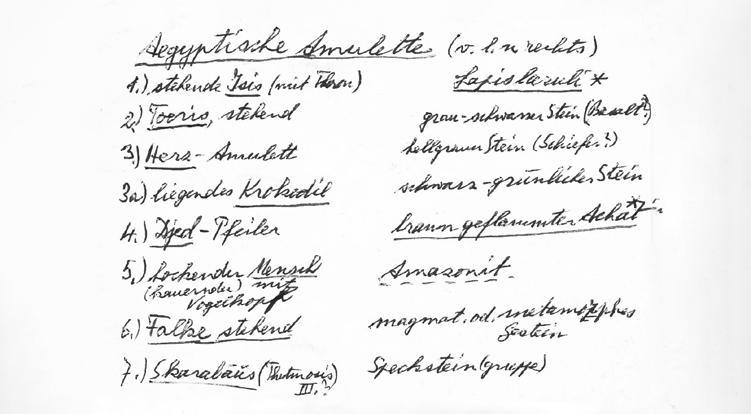 Aegyptische Amulette (v. l. n rechts)
1.) stehende Isis (mit Thron) Lapislazuli *
2.) Toeris, stehend grau-schwarzer Stein (Basalt?)
3.) Herz-Amulett hellgrauer Stein (Schiefer?)
3a) liegendes Krokodil schwarz-grünlicher Stein
4.) Djed-Pfeiler braun geflammter Achat *
5.) hockender Mensch Amazonit
(kauernder) mit
Vogelkopf
6.) Falke stehend magmat. od. metamorphes
Gestein
7.) Skarabäus (Thutmosis Speckstein (gruppe)
III.?)